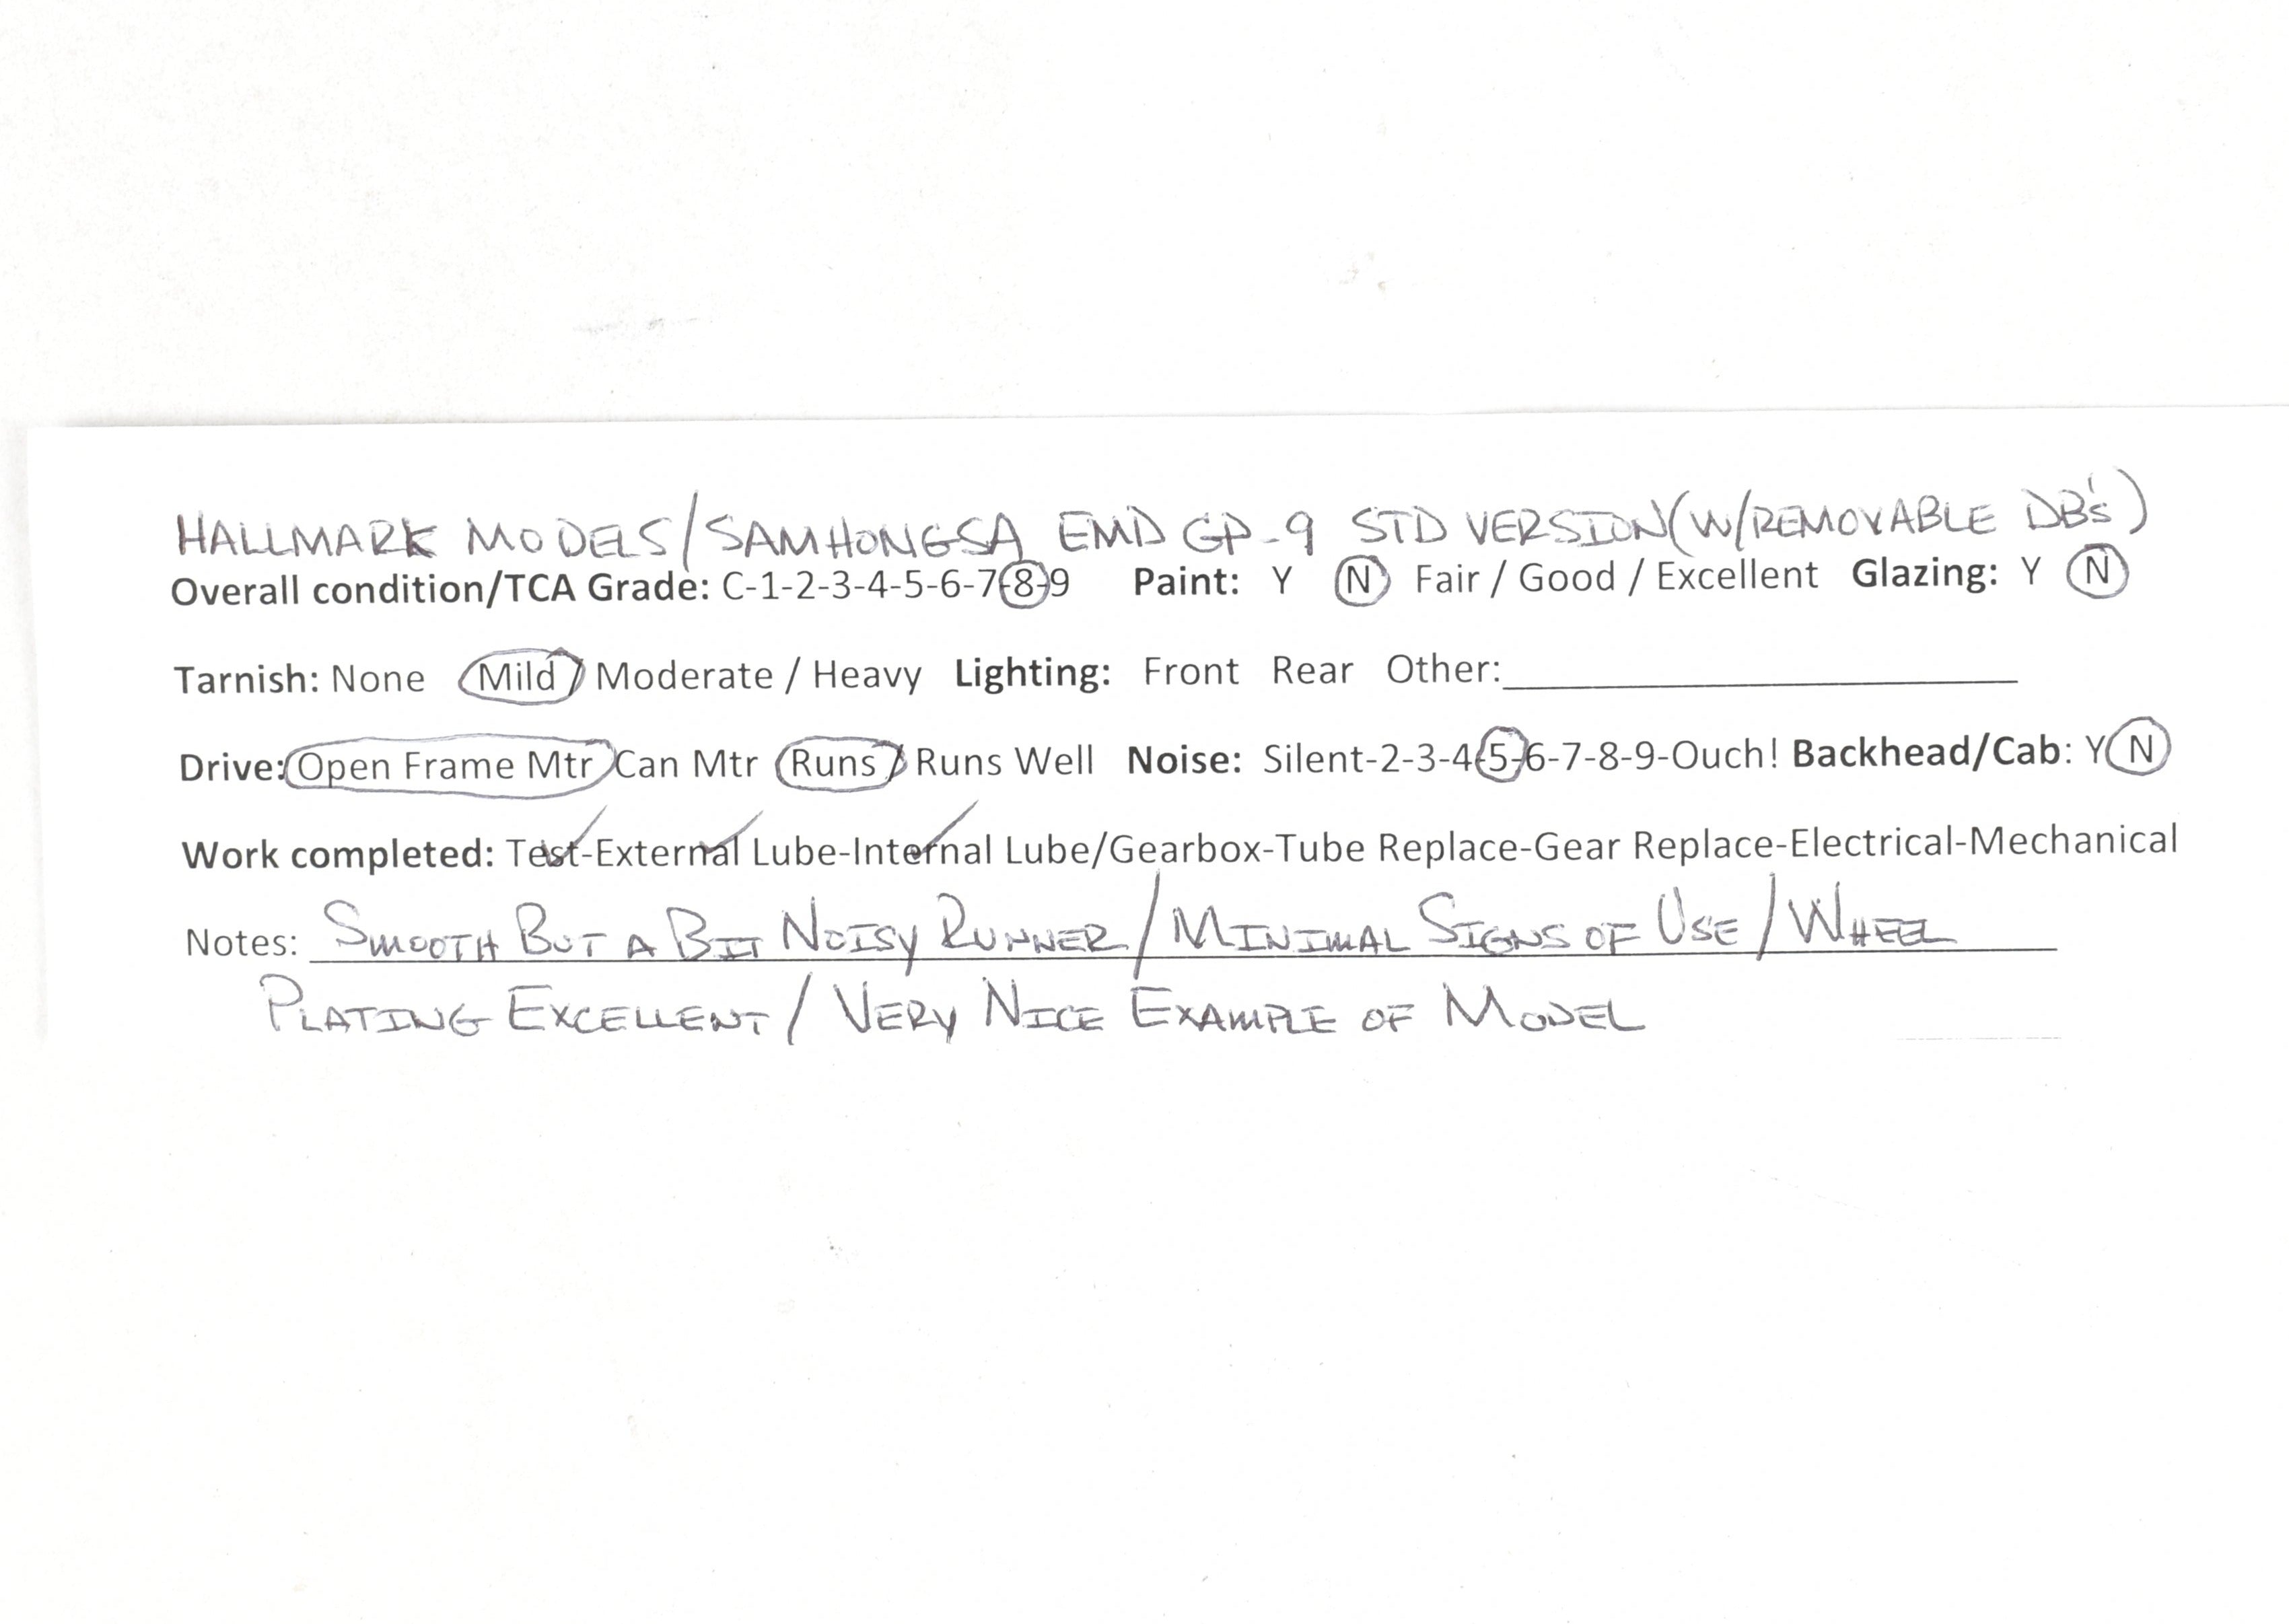 HALLMARK MODELS/SAMHONGSA EMD GP-9 STD VERSION (W/REMOVABLE DB's)
Overall condition/TCA Grade: C-1-2-3-4-5-6-7-8-9 Paint: Y N Fair / Good / Excellent Glazing: Y N
Tarnish: None Mild / Moderate / Heavy Lighting: Front Rear Other:
Drive: Open Frame Mtr Can Mtr Runs / Runs Well Noise: Silent-2-3-4-5-6-7-8-9-Ouch! Backhead/Cab: Y N
Work completed: Test-External Lube-Internal Lube/Gearbox-Tube Replace-Gear Replace-Electrical-Mechanical
Notes: SMOOTH BUT A BIT NOISY RUNNER / MINIMAL SIGNS OF USE / WHEEL
PLATING EXCELLENT / VERY NICE EXAMPLE OF MODEL